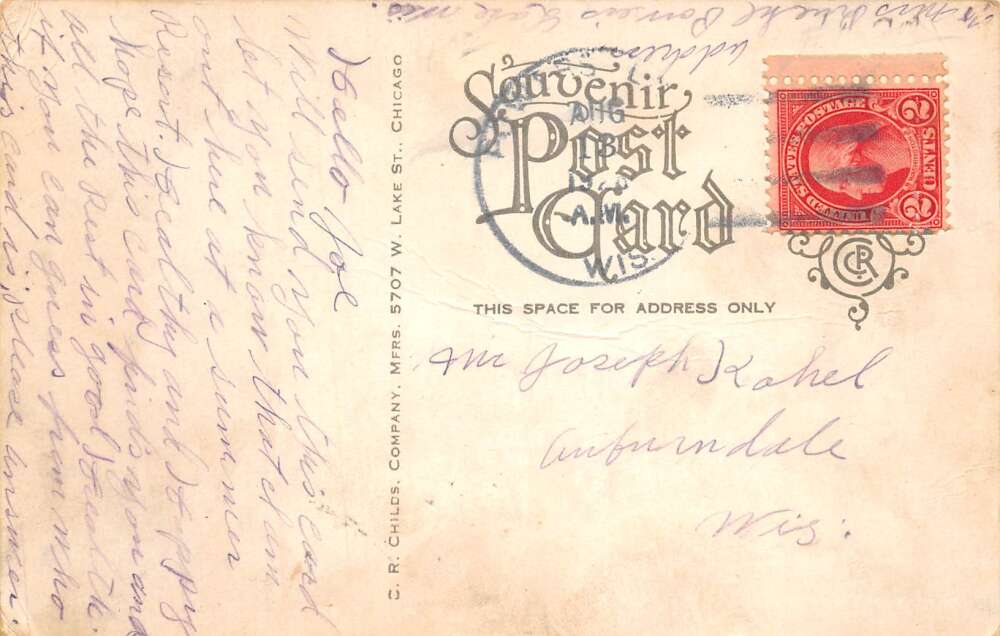 Hello Joe
Will send you this card
let you know that I am
out here at a summer
Resort. Healthy and Happy
Hope this card finds you and
all the rest in good Health.
if you can guess from who
this card is please answer.
address
C. R. CHILDS. COMPANY. MFRS. 5707 W. LAKE ST., CHICAGO
Souvenir
Post
Card
AUG
A.M.
WIS.
UNITED STATES POSTAGE
2 CENTS 2
CRC
THIS SPACE FOR ADDRESS ONLY
Mr Joseph Kahel
Auburndale
Wis.